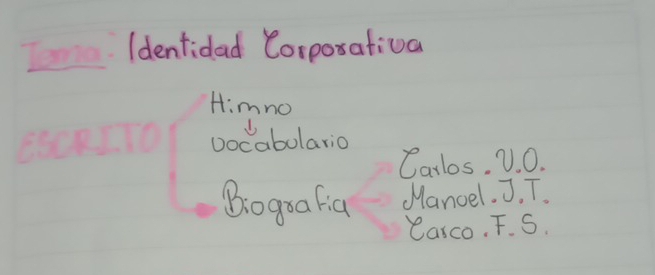 Tema: Identidad Corporativa
Himno
vocabulario
ESCRITO
Biografia
Carlos. V.O.
Manuel. J.T.
Carco. F.S.